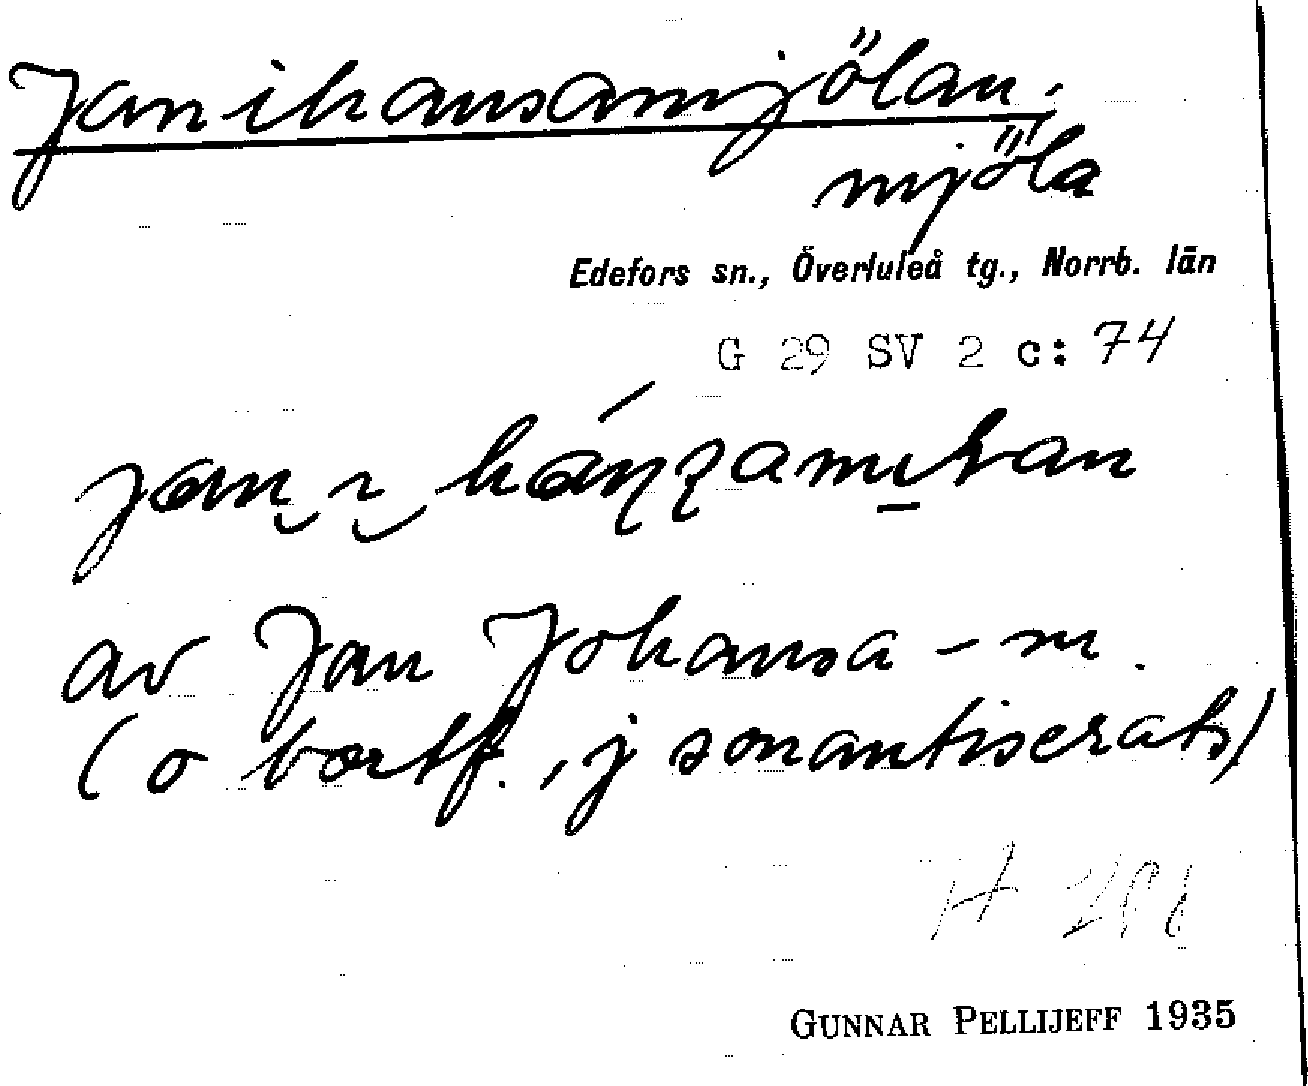 Janihansamjölan.
mjöla
Edefors sn., Överluleå tg., Norrb. län
G 29 SV 2 c: 74
av Jan Johansa - m.
(o bortf., j sonantiserats)
H
GUNNAR PELLIJEFF 1935